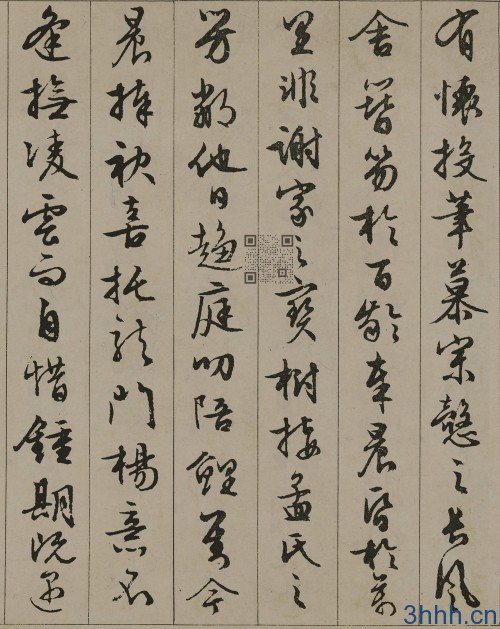 有懷投筆慕宗愨之長風
舍簪笏於百齡奉晨昏於萬
里非謝家之寶樹接孟氏之
芳鄰他日趨庭叨陪鯉對今
晨捧袂喜托龍門楊意不
逢撫凌雲而自惜鍾期既遇
3hhh.cn